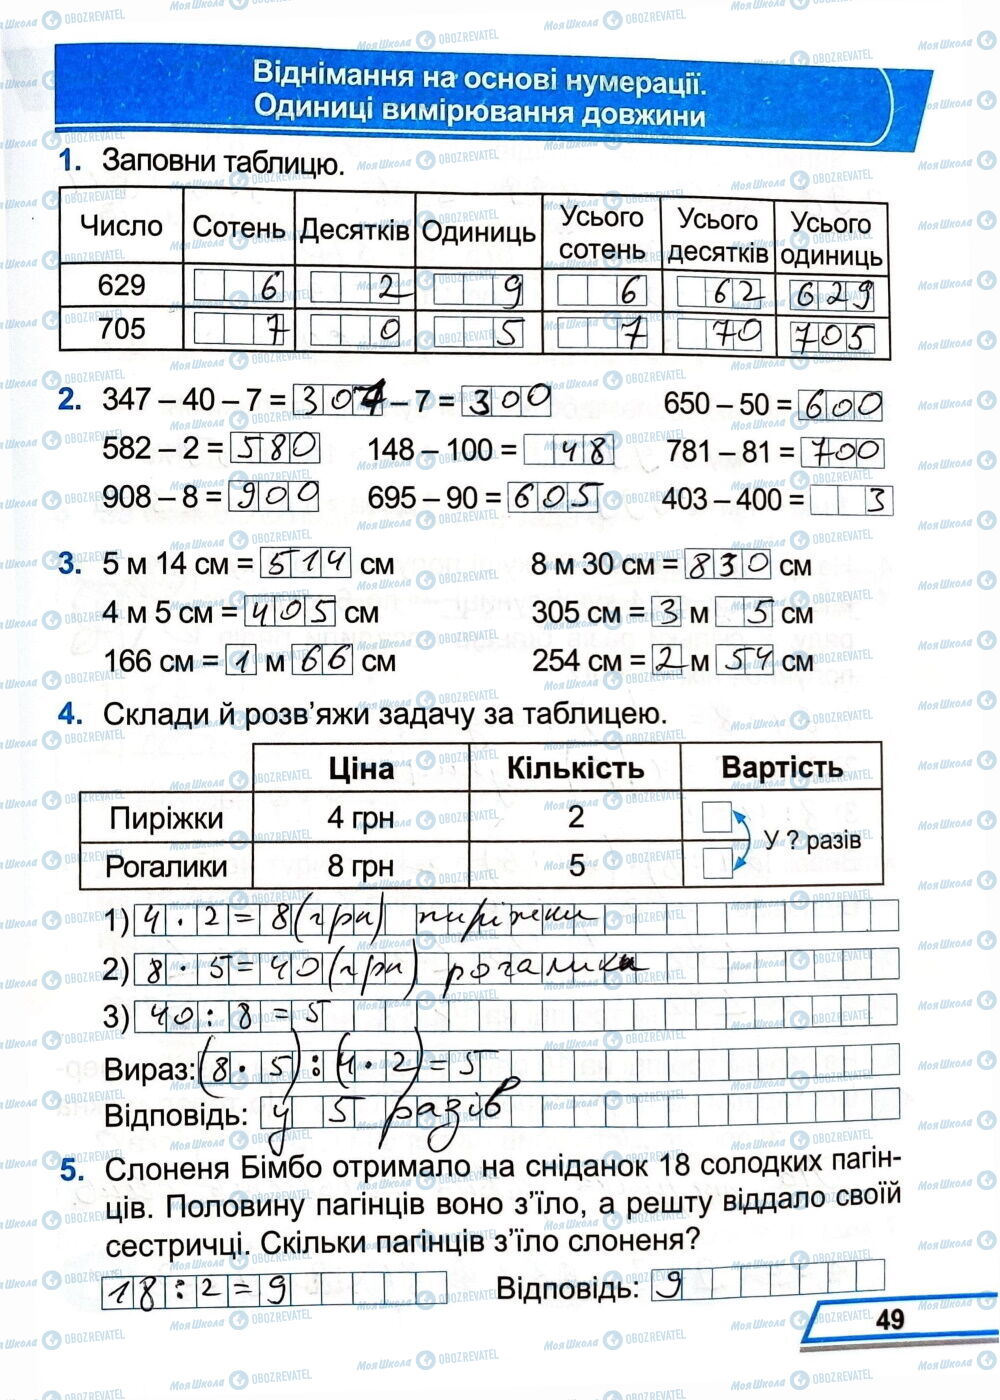 Віднімання на основі нумерації.
Одиниці вимірювання довжини
1. Заповни таблицю.
Число Сотень Десятків Одиниць Усього сотень Усього десятків Усього одиниць
629 6 2 9 6 62 629
705 7 0 5 7 70 705
2. 347 – 40 – 7 = 307 – 7 = 300 650 – 50 = 600
582 – 2 = 580 148 – 100 = 48 781 – 81 = 700
908 – 8 = 900 695 – 90 = 605 403 – 400 = 3
3. 5 м 14 см = 514 см 8 м 30 см = 830 см
4 м 5 см = 405 см 305 см = 3 м 5 см
166 см = 1 м 66 см 254 см = 2 м 54 см
4. Склади й розв’яжи задачу за таблицею.
Ціна Кількість Вартість
Пиріжки 4 грн 2
У ? разів
Рогалики 8 грн 5
1) 4 · 2 = 8 (грн) пиріжки
2) 8 · 5 = 40 (грн) рогалики
3) 40 : 8 = 5
Вираз: (8 · 5) : (4 · 2) = 5
Відповідь: у 5 разів
5. Слоненя Бімбо отримало на сніданок 18 солодких пагін-
ців. Половину пагінців воно з’їло, а решту віддало своїй
сестричці. Скільки пагінців з’їло слоненя?
18 : 2 = 9 Відповідь: 9
49
МояШкола OBOZREVATEL